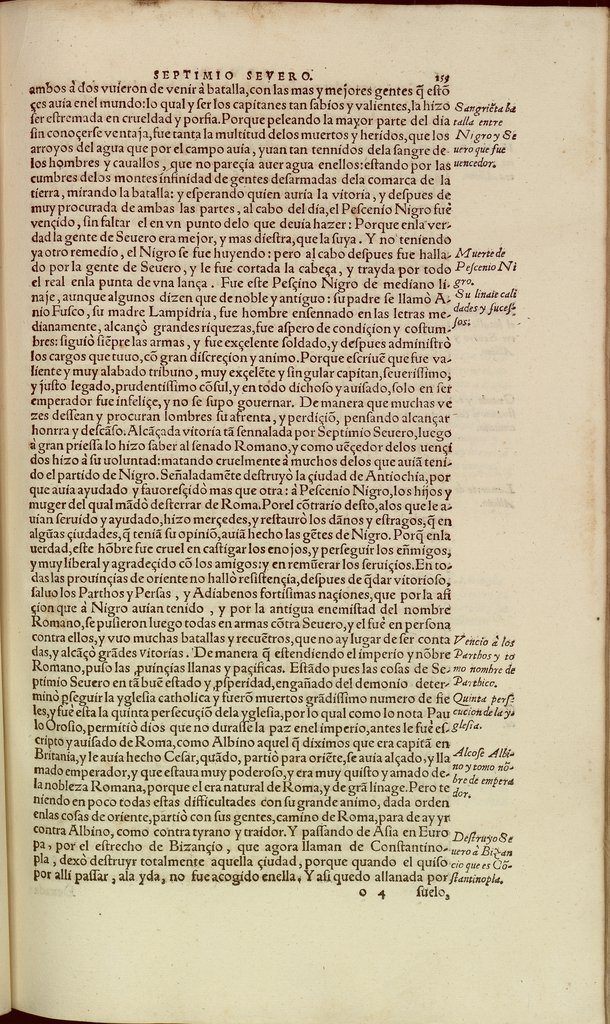 SEPTIMIO SEVERO. 159
ambos à dos vuieron de venir à batalla, con las mas y mejores gentes q̃ estõ
çes auia enel mundo: lo qual y ser los capitanes tan sabios y valientes, la hizo
ser estremada en crueldad y porfia. Porque peleando la mayor parte del dia
sin conoçerse ventaja, fue tanta la multitud delos muertos y heridos, que los
arroyos del agua que por el campo auia, yuan tan tennidos dela sangre de
los hombres y cauallos, que no pareçia auer agua enellos: estando por las
cumbres delos montes infinidad de gentes desarmadas dela comarca de la
tierra, mirando la batalla: y esperando quien auria la vitoria, y despues de
muy procurada de ambas las partes, al cabo del dia, el Pescenio Nigro fue
vençido, sin faltar el en vn punto delo que deuia hazer: Porque enla ver-
dad la gente de Seuero era mejor, y mas diestra, que la suya. Y no teniendo
ya otro remedio, el Nigro se fue huyendo: pero al cabo despues fue halla-
do por la gente de Seuero, y le fue cortada la cabeça, y trayda por todo
el real enla punta de vna lança. Fue este Pesçino Nigro de mediano li-
naje, aunque algunos dizen que de noble y antiguo: su padre se llamò A-
nio Fusco, su madre Lampidria, fue hombre ensennado en las letras me-
dianamente, alcançò grandes riquezas, fue aspero de condiçion y costum-
bres: siguiò siẽpre las armas, y fue exçelente soldado, y despues administrò
los cargos que tuuo, cõ gran discreçion y animo. Porque escriuẽ que fue va-
liente y muy alabado tribuno, muy exçelẽte y singular capitan, seuerissimo,
y justo legado, prudentissimo cõsul, y en todo dichoso y auisado, solo en ser
emperador fue infeliçe, y no se supo gouernar. De manera que muchas ve
zes dessean y procuran lombres su afrenta, y perdiçiõ, pensando alcançar
honrra y descãso. Alcãçada vitoria tã sennalada por Septimio Seuero, luego
à gran priessa lo hizo saber al senado Romano, y como uẽçedor delos uençi
dos hizo à su uoluntad: matando cruelmente à muchos delos que auiã teni-
do el partido de Nigro. Señaladamẽte destruyò la çiudad de Antiochia, por
que auia ayudado y fauoresçidò mas que otra: à Pescenio Nigro, los hijos y
muger del qual mãdò desterrar de Roma. Porel cõtrario desto, alos que le a-
uian seruido y ayudado, hizo merçedes, y restaurò los dãnos y estragos, q̃ en
algũas çiudades, q̃ teniã su opiniõ, auiã hecho las gẽtes de Nigro. Porq̃ enla
uerdad, este hõbre fue cruel en castigar los enojos, y perseguir los eñmigos,
y muy liberal y agradeçido cõ los amigos: y en remũerar los seruiçios. En to-
das las prouinçias de oriente no hallò resistençia, despues de q̃dar vitorioso,
saluo los Parthos y Persas, y Adiabenos fortisimas naçiones, que por la afi
çion que à Nigro auian tenido, y por la antigua enemistad del nombre
Romano, se pusieron luego todas en armas cõtra Seuero, y el fue en persona
contra ellos, y vuo muchas batallas y recuẽtros, que no ay lugar de ser conta
das, y alcãçò grãdes vitorias. De manera q̃ estendiendo el imperio y nõbre
Romano, puso las ꝓuinçias llanas y paçificas. Estãdo pues las cosas de Se-
ptimio Seuero en tã buẽ estado y, ꝓsperidad, engañado del demonio deter-
minò ꝑseguir la yglesia catholica y fuerõ muertos grãdissimo numero de fie
les, y fue esta la quinta persecuçiõ dela yglesia, por lo qual como lo nota Pau
lo Orosio, permitiò dios que no durasse la paz enel imperio, antes le fue es-
cripto y auisado de Roma, como Albino aquel q̃ diximos que era capitã en
Britania, y le auia hecho Cesar, quãdo, partiò para oriẽte, se auia alçado, y lla
mado emperador, y que estaua muy poderoso, y era muy quisto y amado de-
la nobleza Romana, porque el era natural de Roma, y de grã linage. Pero te
niendo en poco todas estas difficultades con su grande animo, dada orden
enlas cosas de oriente, partiò con sus gentes, camino de Roma, para de ay yr
contra Albino, como contra tyrano y traidor. Y passando de Asia en Euro
pa, por el estrecho de Bizançio, que agora llaman de Constantino-
pla, dexò destruyr totalmente aquella çiudad, porque quando el quiso
por alli passar, ala yda, no fue acogido enella. Y asi quedo allanada por
o 4 suelo,
Sangriẽta ba
talla entre
Nigro y Se
uero que fue
uencedor.
Muerte de
Pescenio Ni
gro.
Su linaie cali
dades y suces-
sos.
Vencio à los
Parthos y to
mo nombre de
Parthico.
Quinta perse
cucion de la y-
glesia.
Alçose Albi-
no y tomo nõ-
bre de empera
dor.
Destruyo Se
uero à Bizan
cio que es Cõ-
stantinopla.